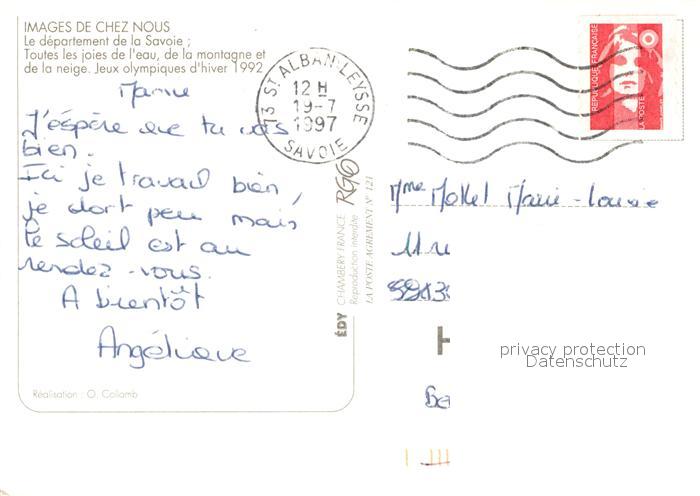 IMAGES DE CHEZ NOUS
Le département de la Savoie ;
Toutes les joies de l'eau, de la montagne et
de la neige. Jeux olympiques d'hiver 1992
J'éspère que tu vas
bien.
Ici je travail bien,
je dort peu mais
le soleil est au
rendez-vous.
A bientôt
Angélique
Réalisation : O. Collomb
73 ST ALBAN-LEYSSE
12 H
19-7
1997
SAVOIE
REPUBLIQUE FRANÇAISE
LA POSTE
ÉDY CHAMBERY FRANCE
Reproduction interdite
LA POSTE AGREMENT N° 121
Mme Mollet Marie-Louise
11 
privacy protection
Datenschutz